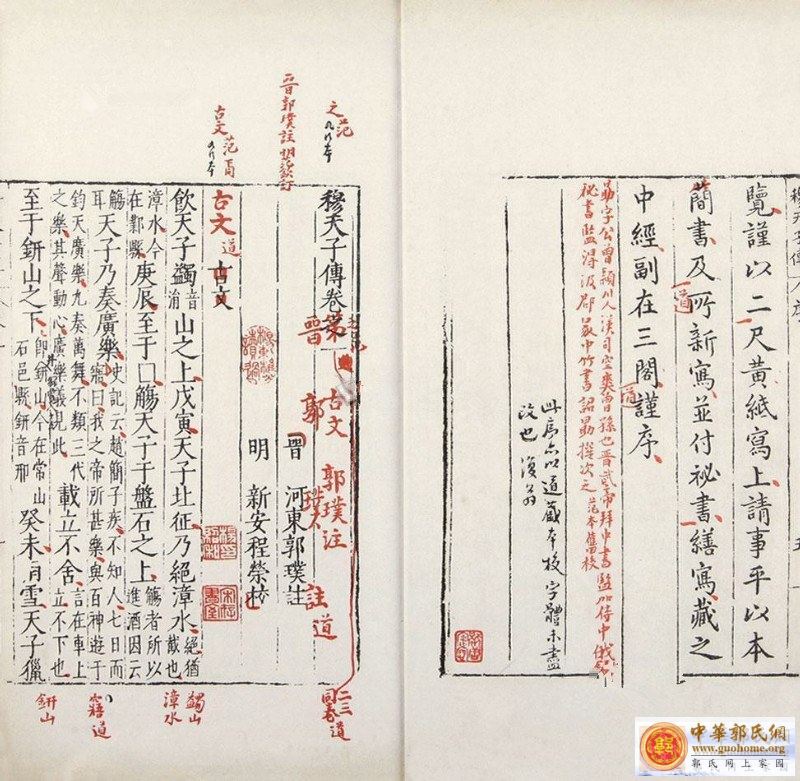 覽謹以二尺黃紙寫上請事平以本
簡書及所新寫並付祕書繕寫藏之
中經副在三閣謹序
道
道
勗字公曾潁川人漢司空爽曾孫也晉武帝拜中書監加侍中俄領
祕書監得汲郡冢中竹書詔勗撰次之 范本舊校
此序亦以道藏本校字體未盡
改也 復翁
之范
九行本
晉郭璞註
古文 范
九行本
穆天子傳卷之一
第
古文 郭璞注 道
晉 郭璞 註
晉 河東郭璞註
明 新安程榮校
古文 道 古文
飲天子蠲音涓山之上戊寅天子北征乃絕漳水絕猶截也
漳水今在鄴縣庚辰至于囗觴天子于盤石之上觴者所以進酒因云
觴耳天子乃奏廣樂史記云趙簡子疾不知人七日而寤曰我之帝所甚樂與百神遊于
鈞天廣樂九奏萬舞不類三代之樂其聲動心廣樂義見此載立不舍言在車上立不下也
至于鈃山之下即鈃山今在常山石邑縣鈃音邢癸未雨雪天子獵
二三同卷道
蠲山
漳水
寤 道
鈃山
中華郭氏網
www.guohome.org
郭氏网上家园